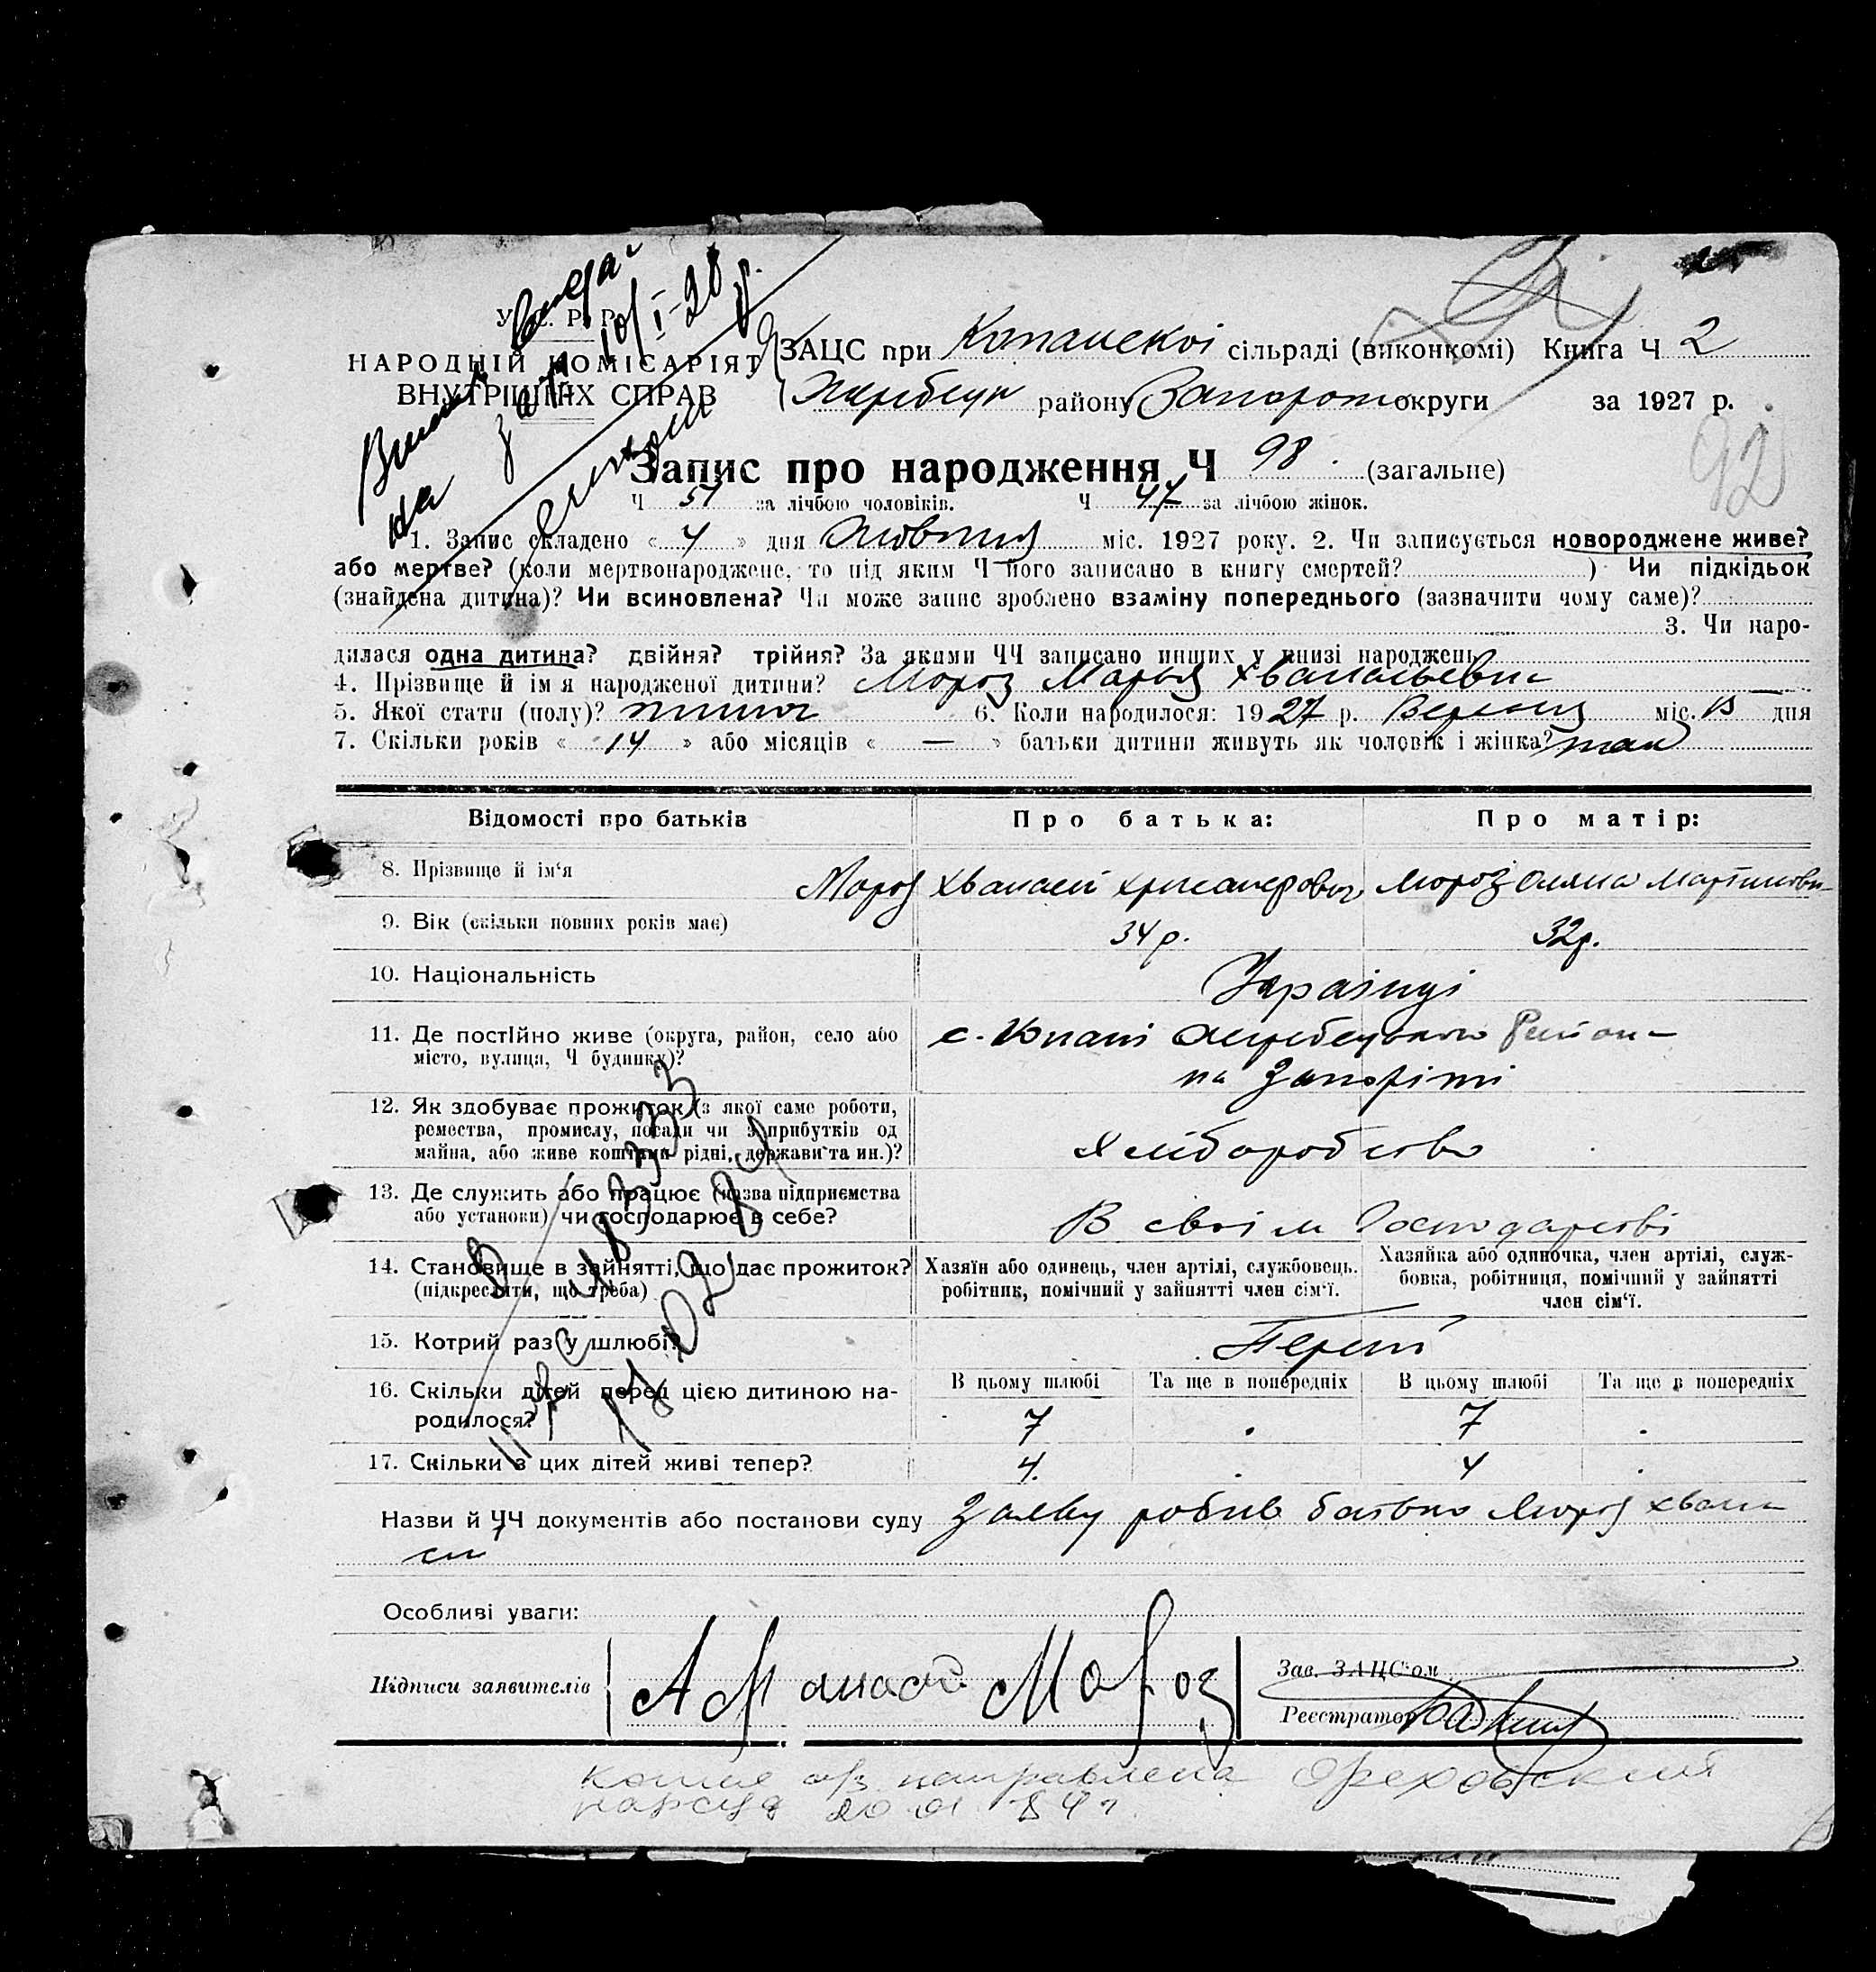 У. С. Р. Р.
НАРОДНІЙ КОМІСАРІЯТ
ВНУТРІШНІХ СПРАВ
ЗАЦС при Копанскої сільраді (виконкомі) Книга Ч 2
району Запорож округи за 1927 р.
92
Запис про народження Ч 98 (загальне)
Ч 51 за лічбою чоловіків. Ч 47 за лічбою жінок.
1. Запис складено « 4 » дня Жовтня міс. 1927 року. 2. Чи записується новороджене живе?
або мертве? (коли мертвонароджене, то під яким Ч його записано в книгу смертей? ) Чи підкідьок
(знайдена дитина)? Чи всиновлена? Чи може запис зроблено взаміну попереднього (зазначити чому саме)?
3. Чи наро-
дилася одна дитина? двійня? трійня? За якими ЧЧ записано инших у книзі народжень
4. Прізвище й ім'я народженої дитини? Мороз Марья Хванасьевна
5. Якої стати (полу)? жіноч 6. Коли народилося: 1927 р. Вересня міс. 13 дня
7. Скільки років « 14 » або місяців « — » батьки дитини живуть як чоловік і жінка? так
Відомості про батьків Про батька: Про матір:
8. Прізвище й ім'я Мороз Хванасій Мороз Оляна Мартиновна
9. Вік (скільки повних років має) 34 р. 32 р.
10. Національність Українці
11. Де постійно живе (округа, район, село або с. Копані Району
місто, вулиця, Ч будинку)? на Запоріжжі
12. Як здобуває прожиток (з якої саме роботи,
ремества, промислу, посади чи з прибутків од
майна, або живе коштами рідні, держави та ин.)? Хліборобство
13. Де служить або працює (назва підприємства
або установи) чи господарює в себе? В своїм Господарстві
14. Становище в зайнятті, що дає прожиток? Хазяїн або одинець, член артілі, службовець. Хазяйка або одиночка, член артілі, служ-
(підкреслити, що треба) робітник, помічний у зайнятті член сім'ї. бовка, робітниця, помічний у зайнятті
член сім'ї.
15. Котрий раз у шлюбі? Перший
16. Скільки дітей перед цією дитиною на- В цьому шлюбі Та ще в попередніх В цьому шлюбі Та ще в попередніх
родилося? 7 7
17. Скільки з цих дітей живі тепер? 4 4
Назви й ЧЧ документів або постанови суду Заяву робив батько Мороз Хвана
сий
Особливі уваги:
Підписи заявителів Мороз
Зав. ЗАЦС'ом
Реєстратор
копия а/з направлена Ореховский
нарсуд 20 01 84 г.